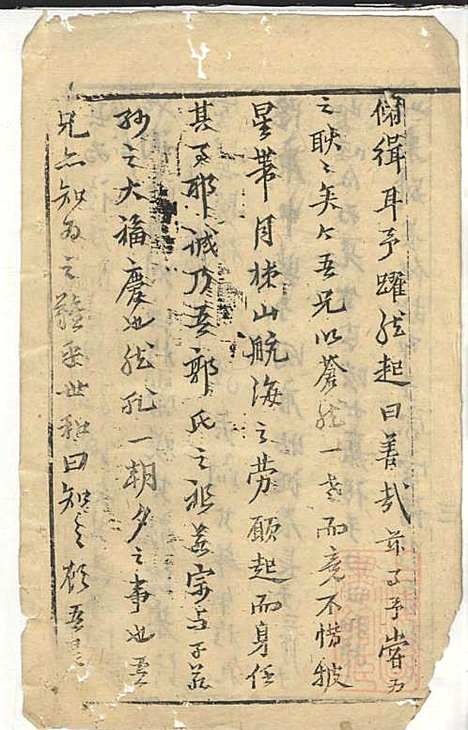 修緝耳予躍然起曰善哉前予嘗為
之耿耿矣今吾兄以蒼然一老而竟不惜披
星帶月梯山航海之勞願起而身任
其事耶誠乃吾郭氏之祖若宗与子若
孫之大福慶也然非一朝夕之事也吾
兄亦知為之難乎世和曰知之於吾